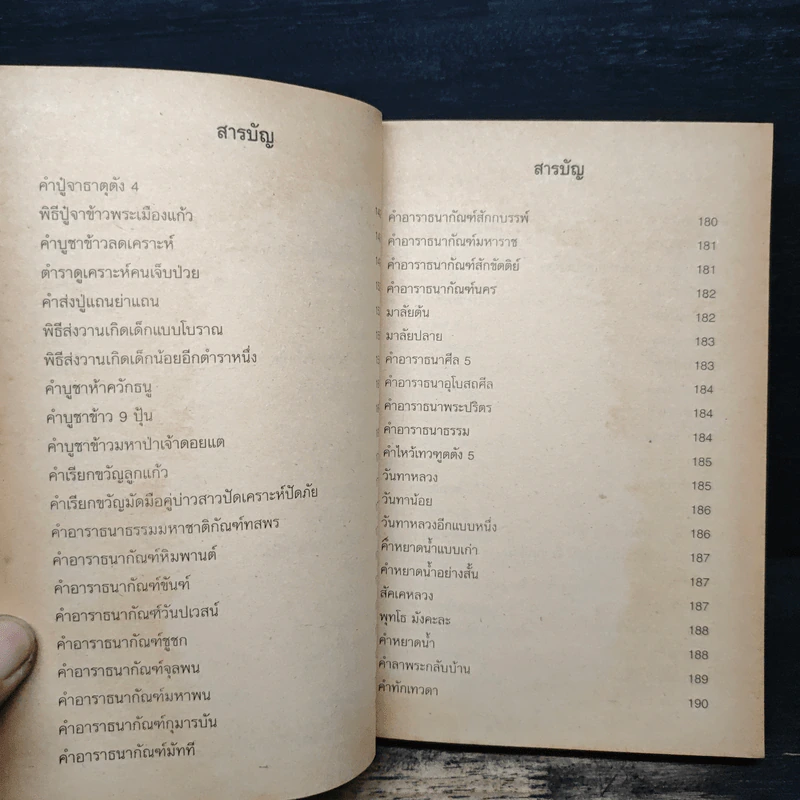 สารบัญ
คำปู่จาธาตุตัง 4
พิธีปู่จาข้าวพระเมืองแก้ว
คำบูชาข้าวลดเคราะห์
ตำราดูเคราะห์คนเจ็บป่วย
คำส่งปู่แถนย่าแถน
พิธีส่งวานเกิดเด็กแบบโบราณ
พิธีส่งวานเกิดเด็กน้อยอีกตำราหนึ่ง
คำบูชาห้าควักธนู
คำบูชาข้าว 9 ปุ้น
คำบูชาข้าวมหาป่าเจ้าดอยแต
คำเรียกขวัญลูกแก้ว
คำเรียกขวัญมัดมือคู่บ่าวสาวปัดเคราะห์ปัดภัย
คำอาราธนาธรรมมหาชาติกัณฑ์ทสพร
คำอาราธนากัณฑ์หิมพานต์
คำอาราธนากัณฑ์ขันฑ์
คำอาราธนากัณฑ์วันปเวสน์
คำอาราธนากัณฑ์ชูชก
คำอาราธนากัณฑ์จุลพน
คำอาราธนากัณฑ์มหาพน
คำอาราธนากัณฑ์กุมารบัน
คำอาราธนากัณฑ์มัทที
สารบัญ
คำอาราธนากัณฑ์สักกบรรพ์ 180
คำอาราธนากัณฑ์มหาราช 181
คำอาราธนากัณฑ์สักขัตติย์ 181
คำอาราธนากัณฑ์นคร 182
มาลัยต้น 182
มาลัยปลาย 183
คำอาราธนาศีล 5 183
คำอาราธนาอุโบสถศีล 184
คำอาราธนาพระปริตร 184
คำอาราธนาธรรม 184
คำไหว้เทวฑูตตัง 5 185
วันทาหลวง 185
วันทาน้อย 186
วันทาหลวงอีกแบบหนึ่ง 186
คำหยาดน้ำแบบเก่า 187
คำหยาดน้ำอย่างสั้น 187
สัคเคหลวง 187
พุทโธ มังคะละ 188
คำหยาดน้ำ 188
คำลาพระกลับบ้าน 189
คำทักเทวดา 190